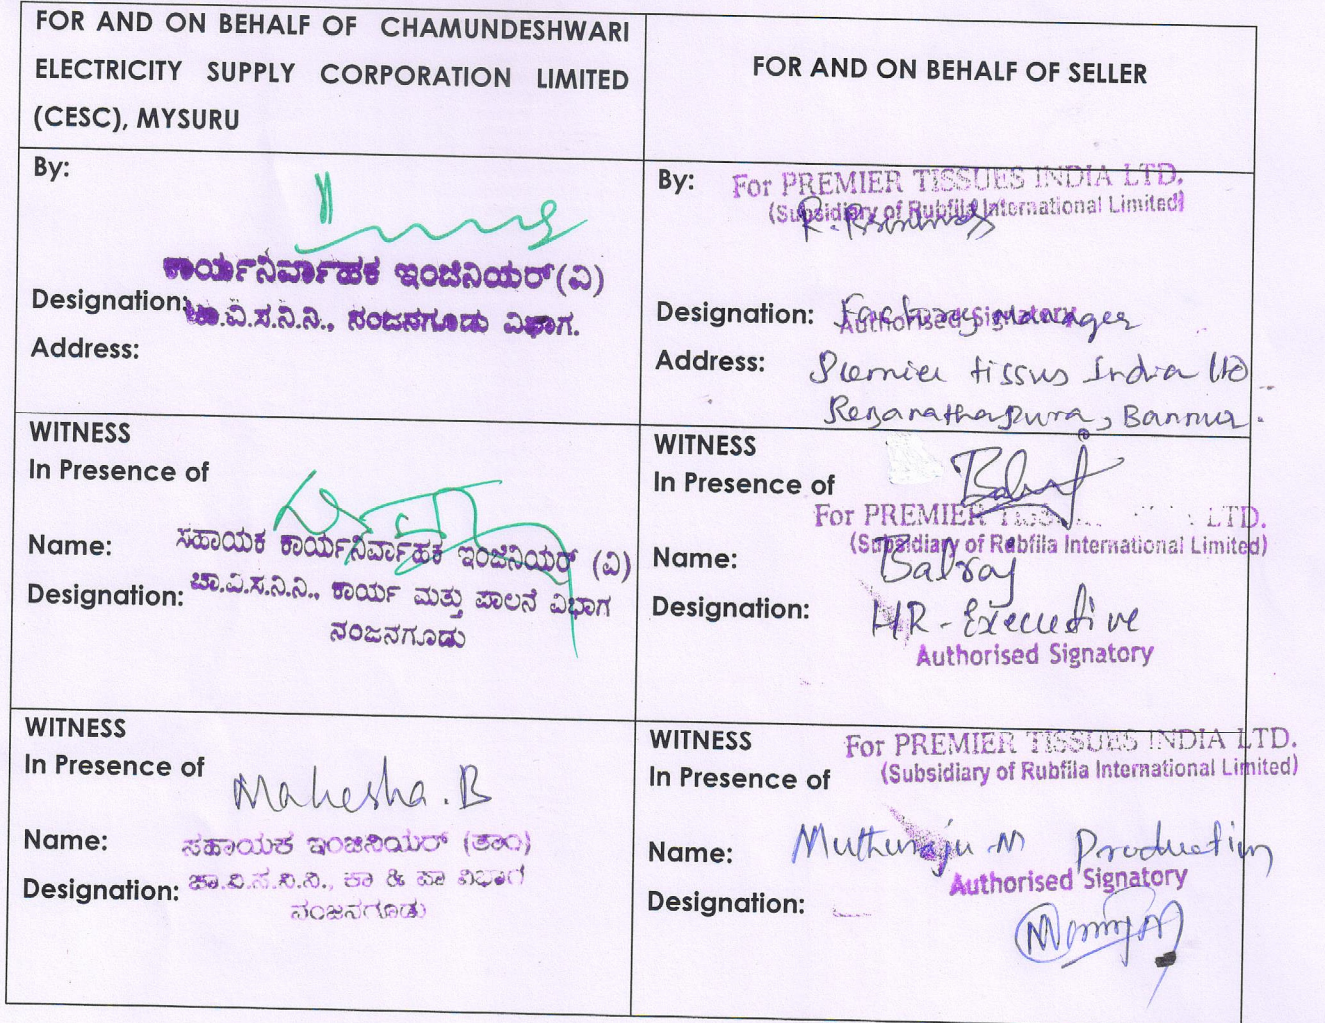 FOR AND ON BEHALF OF CHAMUNDESHWARI
ELECTRICITY SUPPLY CORPORATION LIMITED
(CESC), MYSURU
FOR AND ON BEHALF OF SELLER
By:
ಕಾರ್ಯನಿರ್ವಾಹಕ ಇಂಜಿನಿಯರ್(ವಿ)
Designation:
ಚಾ.ವಿ.ಸ.ನಿ.ನಿ., ನಂಜನಗೂಡು ವಿಭಾಗ.
Address:
By:
For PREMIER TISSUES INDIA LTD.
(Subsidiary of Rubfila International Limited)
Designation: Factory Manager
Authorised Signatory
Address: Premier tissus India Ltd
Bannur.
WITNESS
In Presence of
Name: ಸಹಾಯಕ ಕಾರ್ಯನಿರ್ವಾಹಕ ಇಂಜಿನಿಯರ್ (ವಿ)
Designation: ಚಾ.ವಿ.ಸ.ನಿ.ನಿ., ಕಾರ್ಯ ಮತ್ತು ಪಾಲನೆ ವಿಭಾಗ
ನಂಜನಗೂಡು
WITNESS
In Presence of
For PREMIER TISSUES INDIA LTD.
(Subsidiary of Rubfila International Limited)
Name: Balraj
Designation: HR-Executive
Authorised Signatory
WITNESS
In Presence of
Mahesha.B
Name: ಸಹಾಯಕ ಇಂಜಿನಿಯರ್ (ತಾಂ)
Designation: ಚಾ.ವಿ.ಸ.ನಿ.ನಿ., ಕಾ & ಪಾ ವಿಭಾಗ
ನಂಜನಗೂಡು
WITNESS
For PREMIER TISSUES INDIA LTD.
(Subsidiary of Rubfila International Limited)
In Presence of
Name: Muthuraju.M Production
Authorised Signatory
Designation: